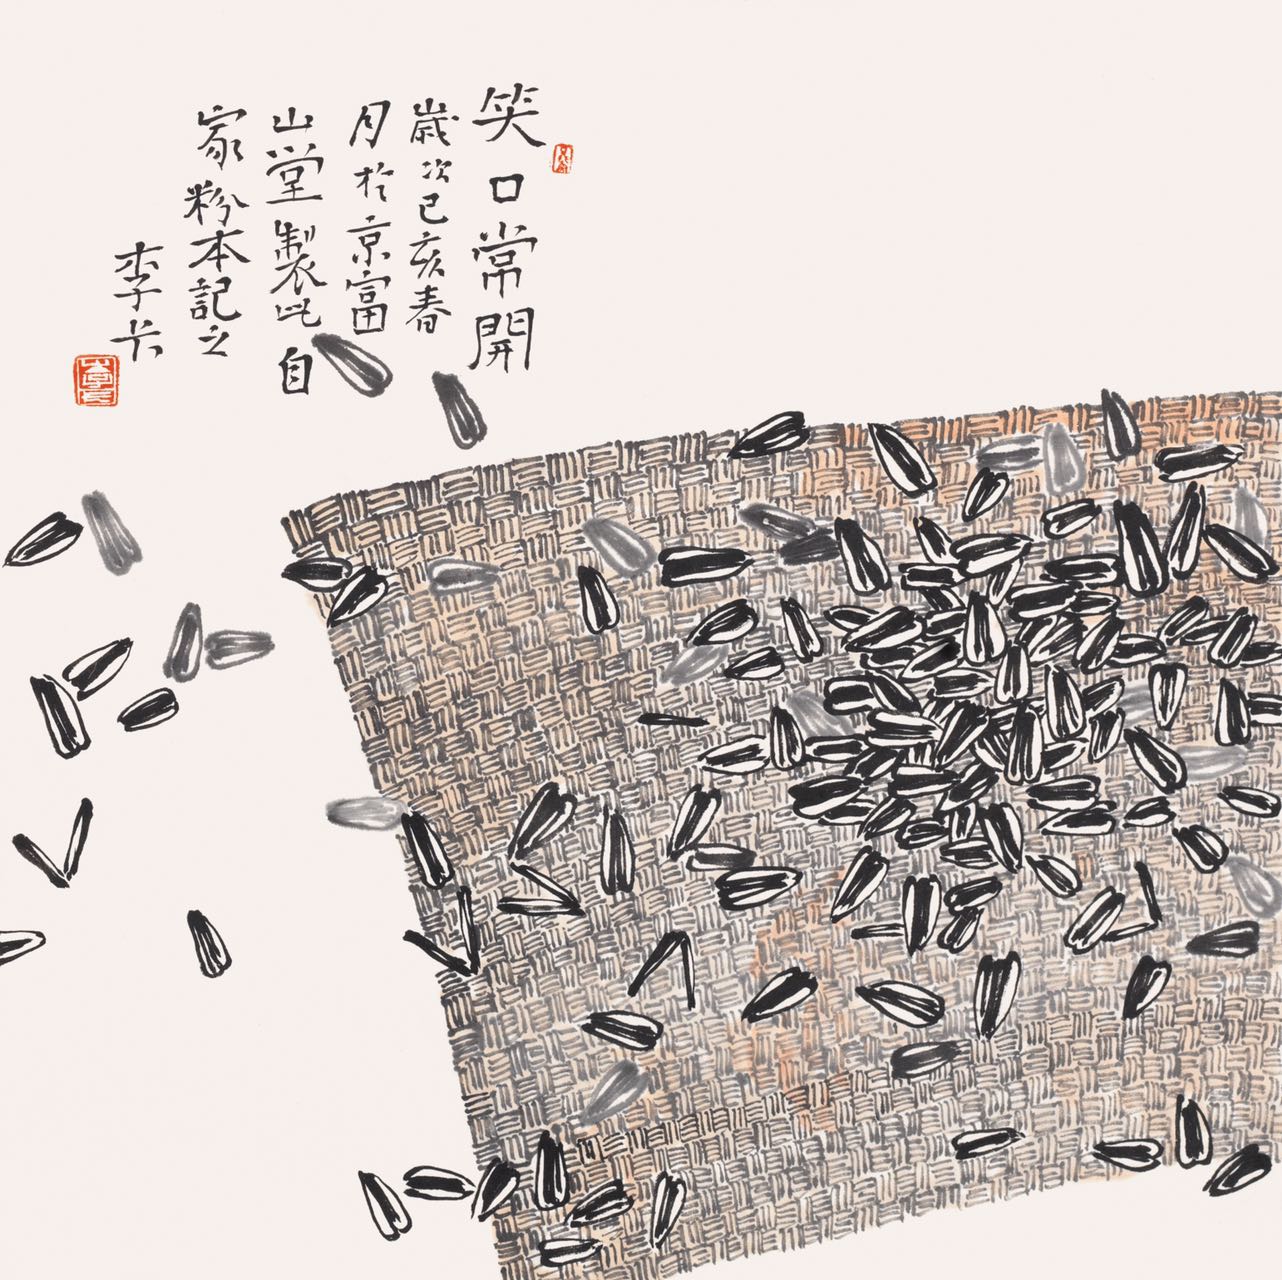 笑口常開
歲次己亥春
月於京富
山堂製此自
家粉本記之
李長